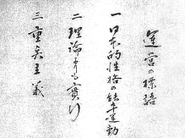 運営の標語
一 日本的性格の結束運動
二 理論よりも実行
三 重点主義